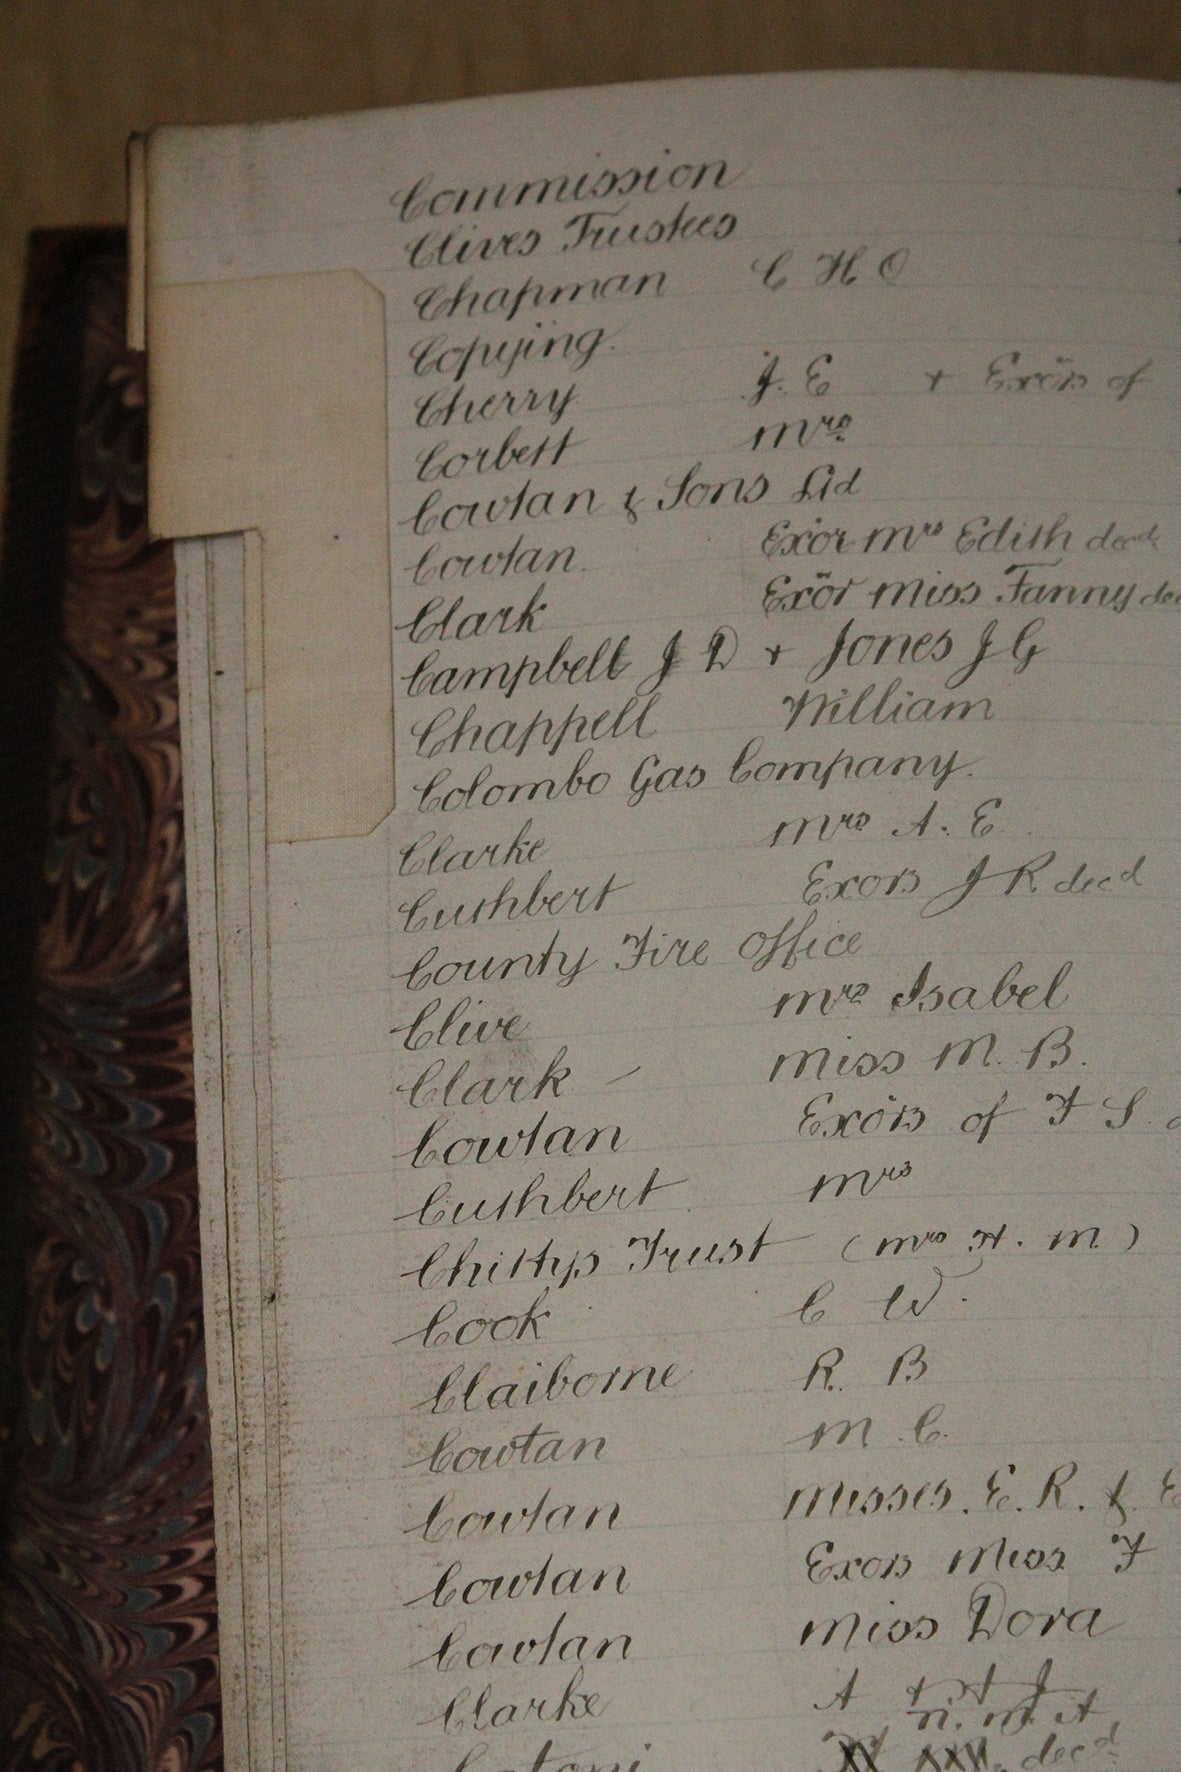 Commission
Clives Trustees
Chapman C H O
Copying.
Cherry J. E + Exörs of
Corbett Mrs
Cowtan & Sons Ltd
Cowtan. Exor Mrs Edith decd
Clark Exör Miss Fanny
Campbell J D + Jones J G
Chappell William
Colombo Gas Company.
Clarke Mrs A. E.
Cuthbert Exors J R decd
County Fire Office
Clive Mrs Isabel
Clark – Miss M. B.
Cowtan Exörs of F S.
Cuthbert Mrs
Chittys Trust (Mrs H. M.)
Cook C W.
Claiborne R. B
Cowtan M. C.
Cowtan Misses. E. R. & E
Cowtan Exors Miss F
Cowtan Miss Dora
Clarke A
decd